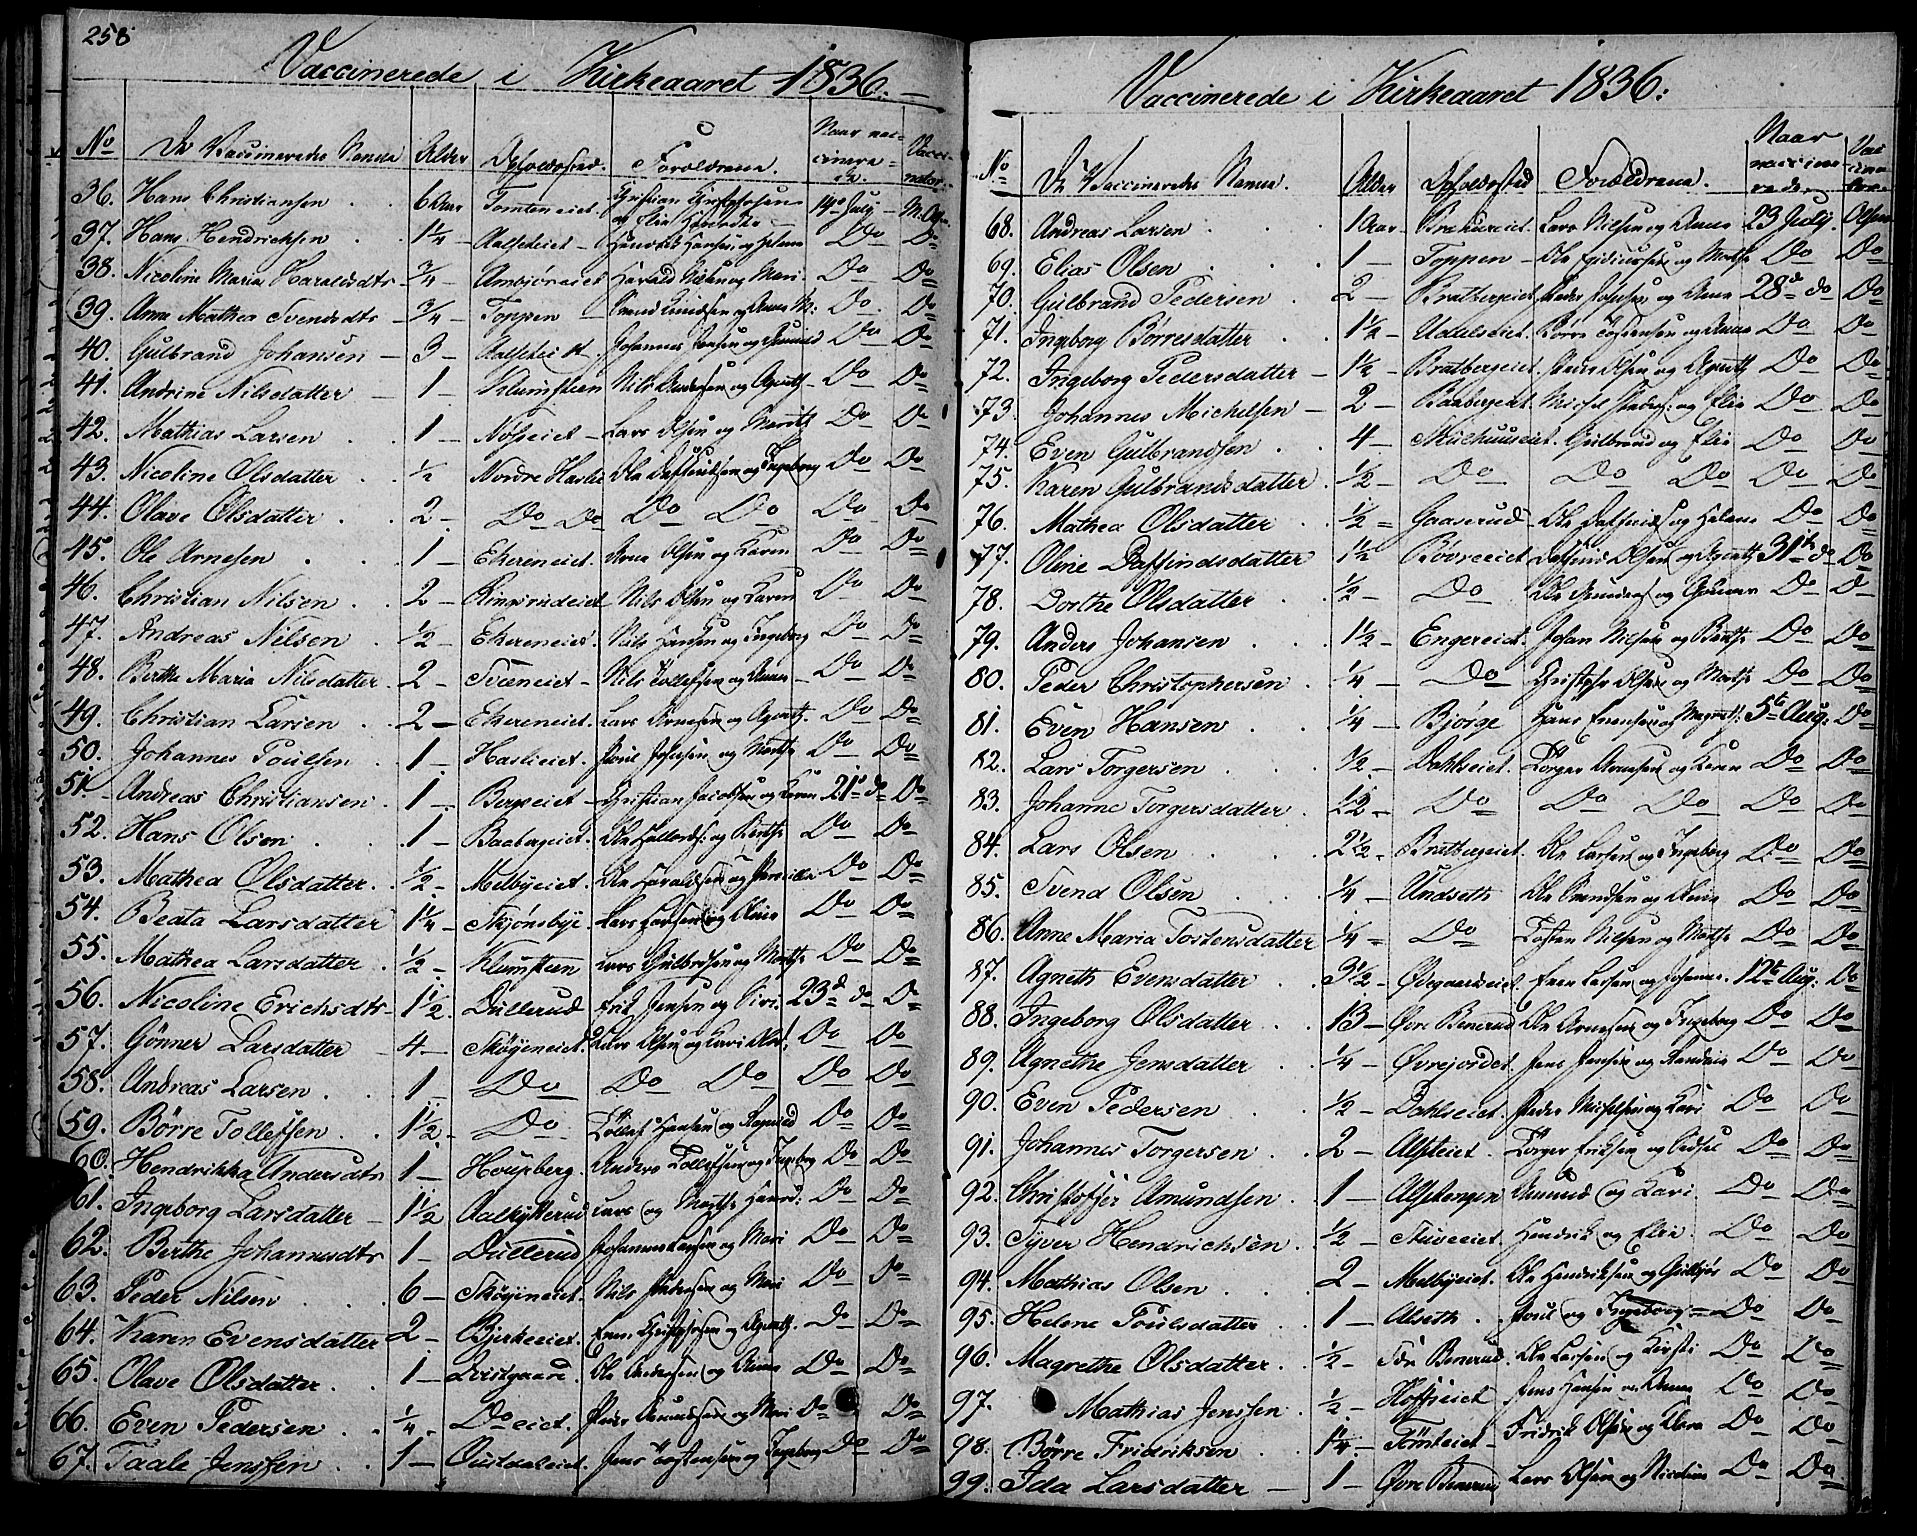 258
Vaccinerede i Kirkeaaret 1836.
No De Vaccineredes Navne Alder Opholdssted Forældrene Naar vaccinerede Vaccinator
36. Hans Christiansen 6 Uger Tomteneiet Christian Christophersen og Elie 14de July
37. Hans Hendrichsen 1¼ Aalseteiet Hendrik Hansen og Helene Do Do
38. Nicoline Maria Haraldsdtr ¾ Harald Nilsen og Mari Do Do
39. Anna Mathea Svendsdtr ¾ Toppen Svend Knudsen og Anne M: Do Do
40. Gulbrand Johansen 3 Johannes Do Do
41. Andrine Nilsdatter 1 Klumsteen Nils Andersen og Agneth Do Do
42. Mathias Larsen 1 Nøsseiet Lars Olsen og Marith Do Do
43. Nicoline Olsdatter ½ Nordre Haslie Ole og Ingeborg Do Do
44. Olave Olsdatter 2 Do Do Do Do Do Do
45. Ole Arnesen 1 Ekereneiet Arne Olsen og Karen Do Do
46. Christian Nilsen 2 Ringsrudeiet Nils Olsen og Karen Do Do
47. Andreas Nilsen ½ Ekereneiet Nils Hansen og Ingeborg Do Do
48. Berthe Maria Nilsdatter 2 Nils Tollefsen og Anne Do Do
49. Christian Larsen 2 Ekereneiet Lars Arnesen og Agneth Do Do
50. Johannes Poulsen 1 Haslieiet Poul Johnsen og Marthe Do Do
51. Andreas Christiansen 1 Bergseiet Christian Jacobsen og Karen 21de do Do
52. Hans Olsen 1 Baabergeiet Ole Halvords: og Berthe Do Do
53. Mathea Olsdatter ½ Melbyeiet Ole Haraldsen og Pernille Do Do
54. Beata Larsdatter 1¼ Skjønsbye Lars Larsen og Do Do
55. Mathea Larsdatter ½ Klumsteen Lars Gulbrdsen og Marthe Do Do
56. Nicoline Erichsdtr 1½ Dullerud Erik Jensen og Siri 23de do Do
57. Gønner Larsdatter 4 Skøyeneiet Lars Olsen og Kari Do Do
58. Andreas Larsen 1 Do Do Do Do Do
59. Børre Tollefsen 1½ Do Tollef Hansen og Ragnild Do Do
60. Hendrikka Andersdtr 1 Hougberg Anders Tollefsen og Ingeborg Do Do
61. Ingeborg Larsdatter 1½ Lars og Marthe Do Do
62. Berthe Johannesdtr 1 Dullerud Johannes Larsen og Mari Do Do
63. Peder Nilsen 6 Skøyeneiet Nils Pedersen og Mari Do Do
64. Karen Evensdatter 2 Bjerkeeiet Even Christophersen og Agneth Do Do
65. Olave Olsdatter 1 Ole Andersen og Anne Do Do
66. Even Pedersen ¼ Do eiet Peder Amundsen og Mari Do Do
67. Taale Jenssen 1 Ousdaleiet Jens Torstensen og Ingeborg Do Do
Vaccinerede i Kirkeaaret 1836:
No De Vaccineredes Navne Alder Opholdssted Forældrene Naar vaccinerede Vaccinator
68. Andreas Larsen 1 Aar Lars Nilsen og Anne 23 July Olsen
69. Elias Olsen 1 Toppen Ole og Marthe Do Do
70. Gulbrand Pedersen 2 Bratbergeiet Peder Johnsen og Anne 28de do Do
71. Ingeborg Børresdatter 1½ Børre Torstensen og Anne Do Do
72. Ingeborg Pedersdatter 1½ Bratbergeiet Peder Olsen og Agneth Do Do
73. Johannes Michelsen 2 Baabergeiet Michel Peders: og Elie Do Do
74. Even Gulbrandsen 4 Gulbrand og Elie Do Do
75. Karen Gulbrandsdatter ½ Do Do Do Do Do
76. Mathea Olsdatter ½ Gaaserud Ole og Helene Do Do
77. Oline Daffindsdatter 1½ Bøvreeiet Daffind Olsen og Agneth 31te do Do
78. Dorthe Olsdatter ½ Do Ole og Gunner Do Do
79. Anders Johansen 1½ Engereiet Johan Nilsen og Berthe Do Do
80. Peder Christophersen ¼ Do Christopher Olsen og Marthe Do Do
81. Even Hansen ¼ Bjørge Hans Evensen og Magreth: 5te Aug: Do
82. Lars Torgersen ½ Dahlseiet Torger Arnesen og Karen Do Do
83. Johanne Torgersdatter ½ Do Do Do Do Do
84. Lars Olsen 2½ Bratbergeiet Ole Larsen og Ingeborg Do Do
85. Svend Olsen ¼ Undseth Ole Svendsen og Do Do
86. Anne Maria Tostensdatter ¼ Do Tosten Nilsen og Marthe Do Do
87. Agneth Evensdatter 3½ Ødegaardseiet Even Larsen og Johanne 12te Aug: Do
88. Ingeborg Olsdatter 13 Øvre Benerud Ole Arnesen og Ingeborg Do Do
89. Agnethe Jensdatter ¼ Øvrejordet Jens Jensen og Do Do
90. Even Pedersen ½ Dahlseiet Peder Michelsen og Kari Do Do
91. Johannes Torgersen 2 Alseteiet Torger Eriksen og Sidsel Do Do
92. Christoffer Amundsen 1 Alsetengen Amund og Kari Do Do
93. Syver Hendrichsen ½ Stuveeiet Hendrik og Elie Do Do
94. Mathias Olsen 2 Melbyeiet Ole Hendriksen og Gulbjør Do Do
95. Helene Poulsdatter 1 Alseth Poul og Ingeborg Do Do
96. Magrethe Olsdatter ½ Søe Benerud Ole Larsen og Kirsti Do Do
97. Mathias Jenssen ½ Hoffseiet Jens Hansen og Anne Do Do
98. Børre Fridriksen 1¼ Tømteeiet Fridrik Olsen og Do Do
99. Ida Larsdatter 1 Øvre Benerud Lars Olsen og Nicoline Do Do